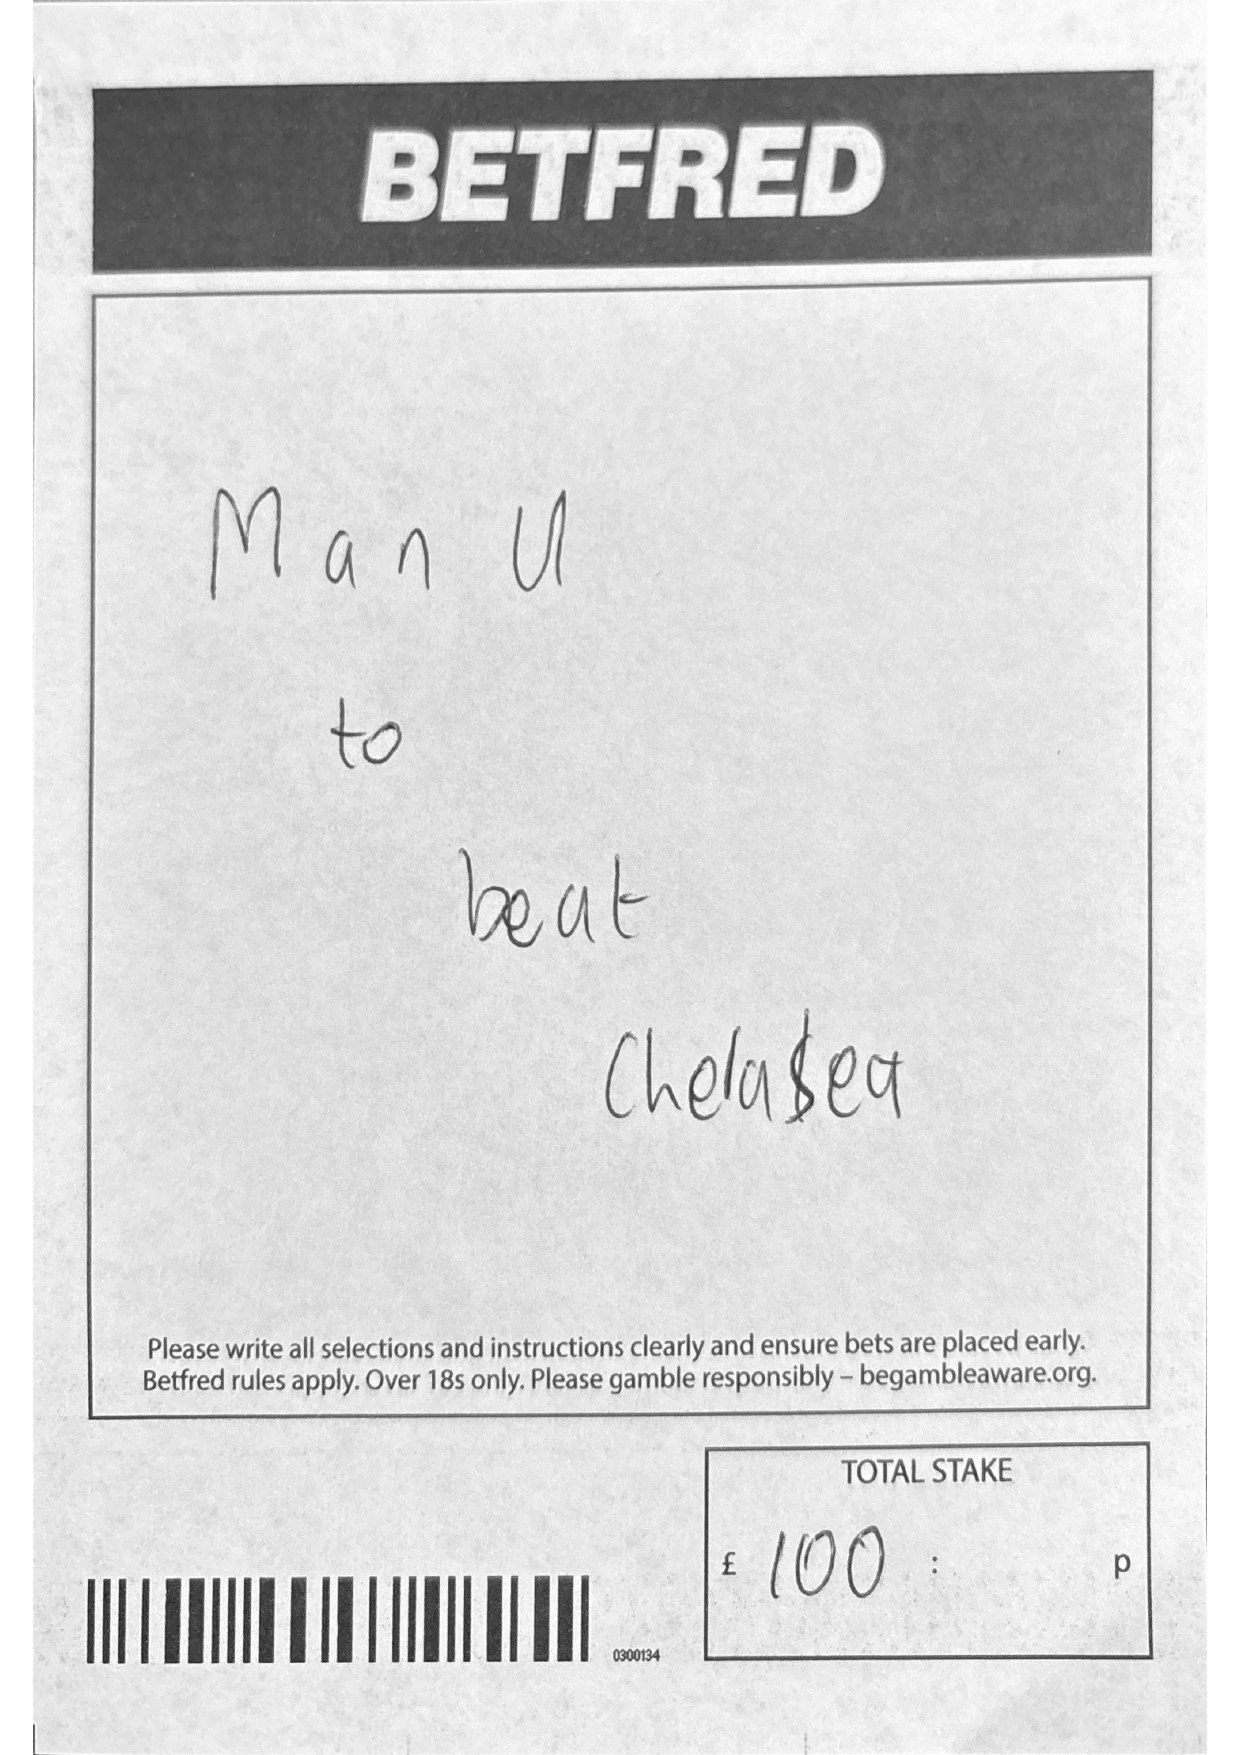 BETFRED
Man U
to
beat
Chelasea
Please write all selections and instructions clearly and ensure bets are placed early.
Betfred rules apply. Over 18s only. Please gamble responsibly – begambleaware.org.
TOTAL STAKE
£ 100 : p
0300134